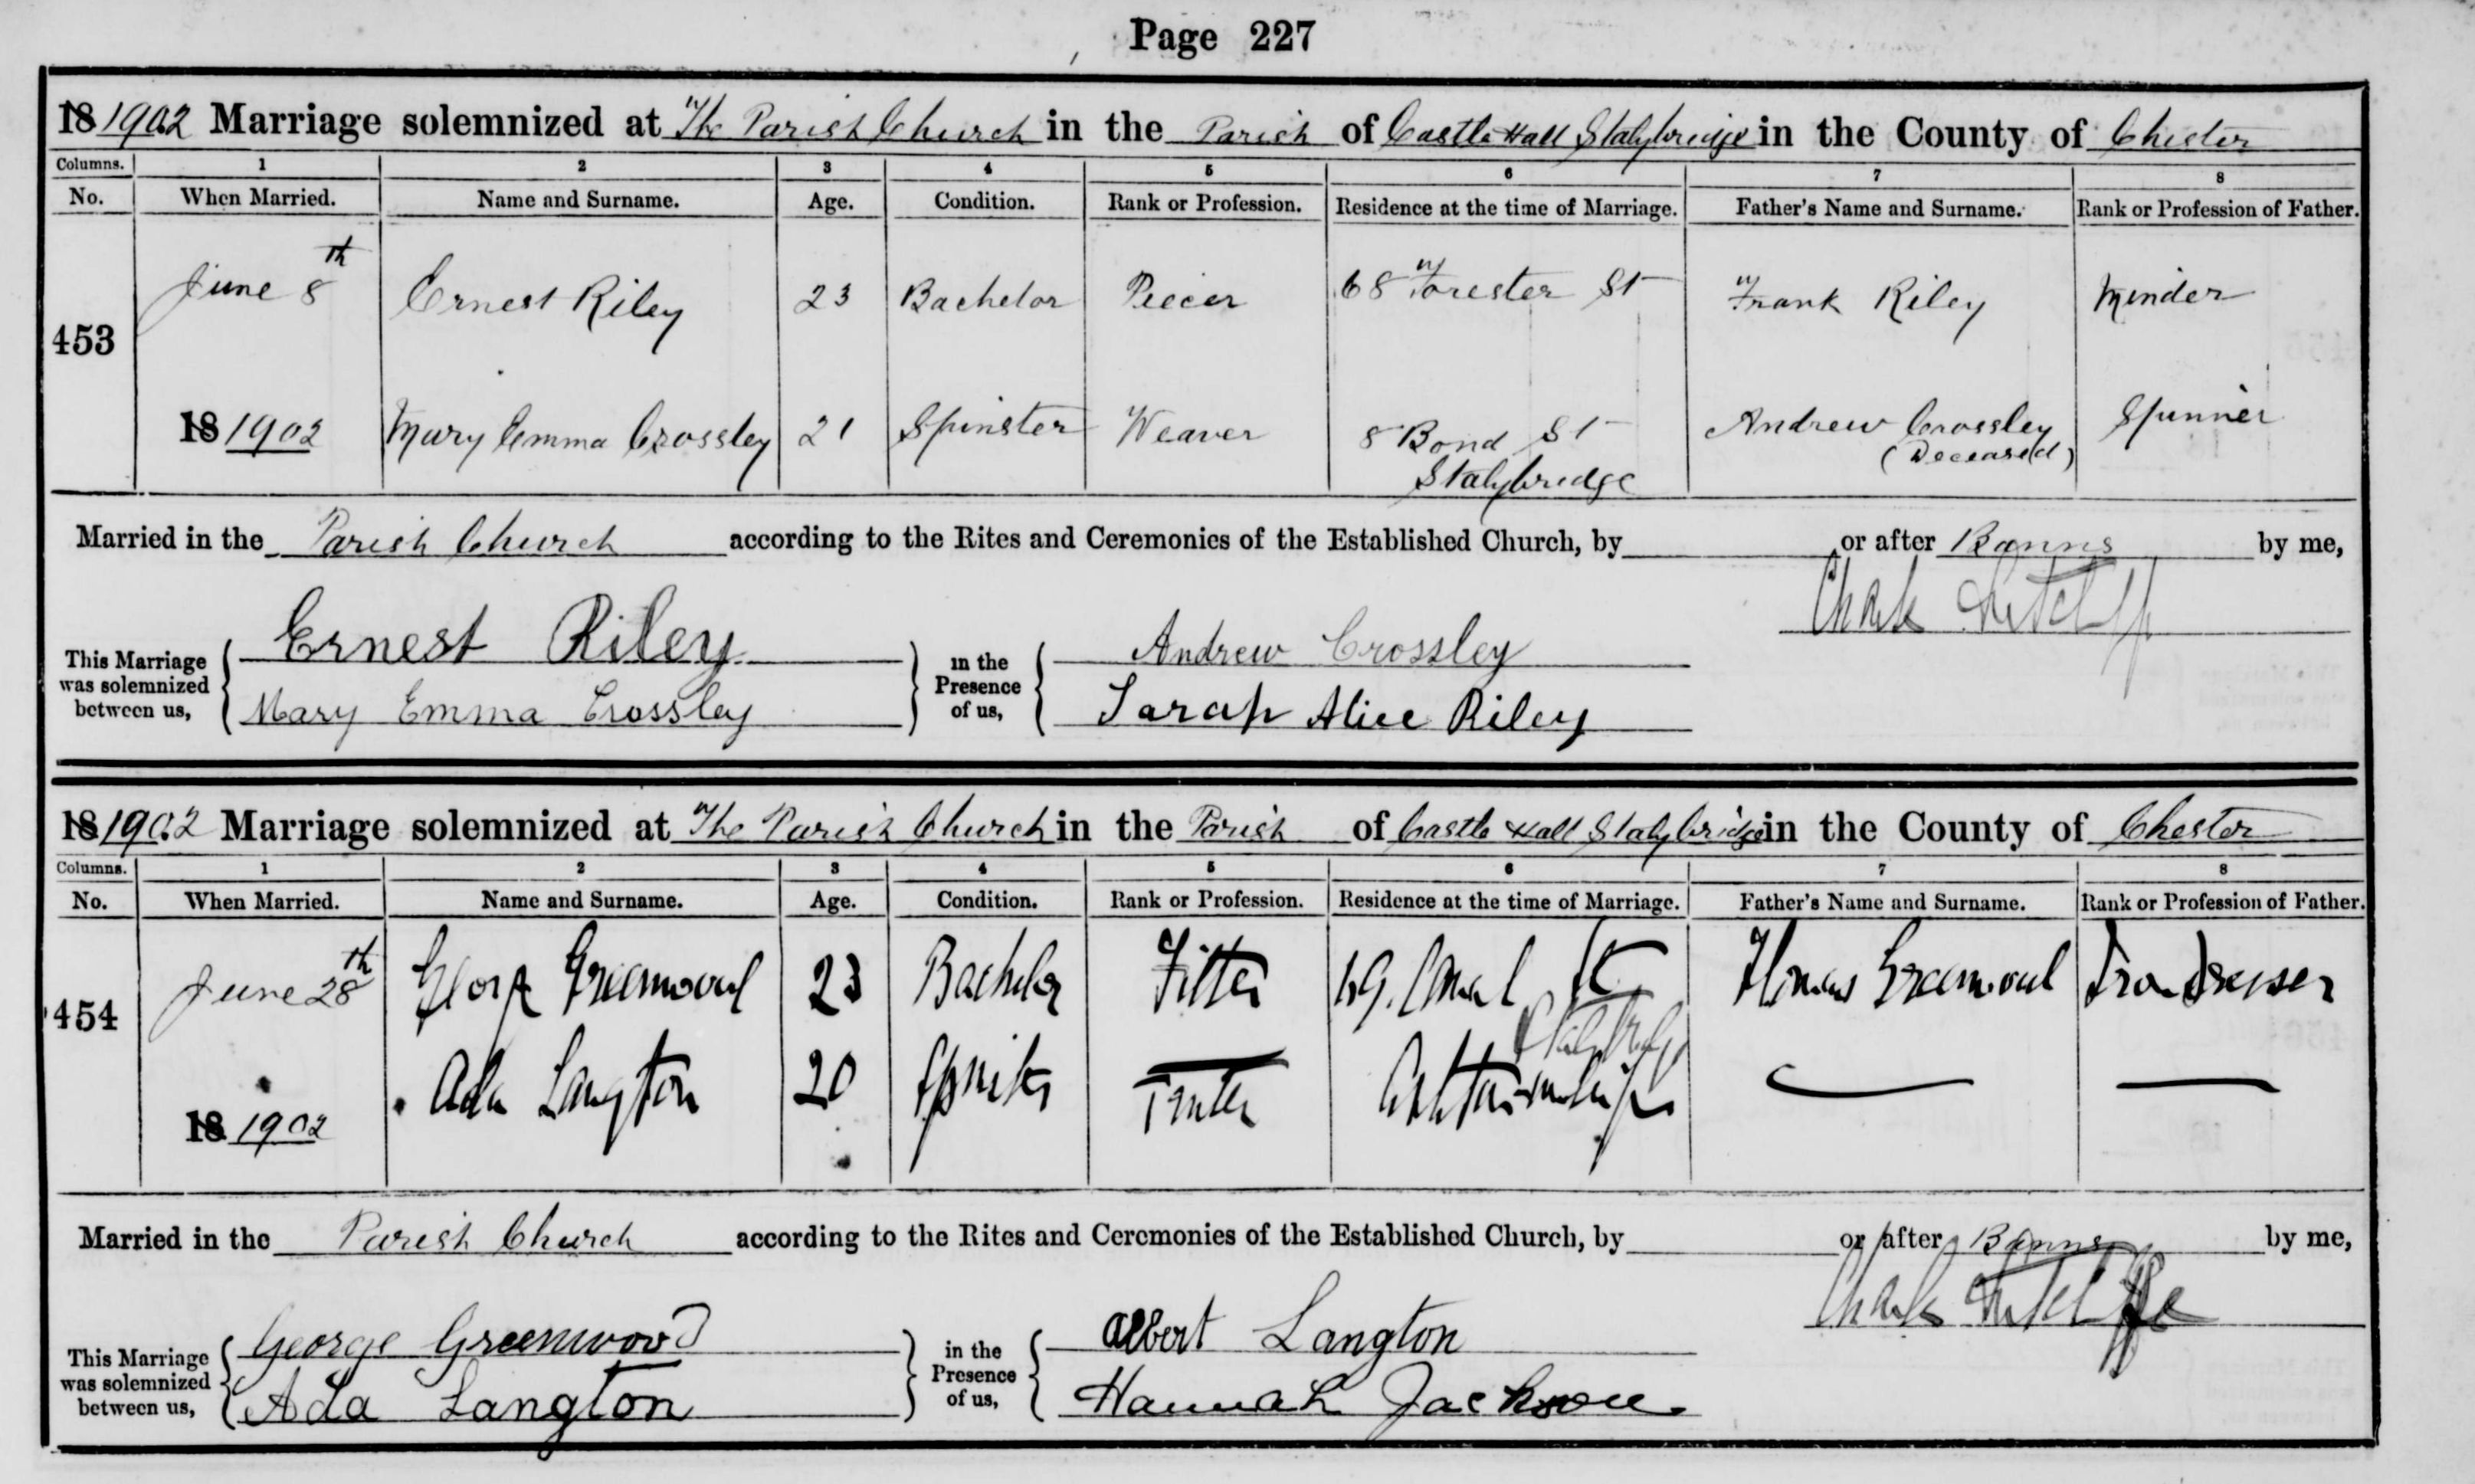 Page 227
18 1902 Marriage solemnized at The Parish Church in the Parish of Castle Hall Stalybridge in the County of Chester
Columns. 1 2 3 4 5 6 7 8
No. When Married. Name and Surname. Age. Condition. Rank or Profession. Residence at the time of Marriage. Father's Name and Surname. Rank or Profession of Father.
June 8th Ernest Riley 23 Bachelor Piecer 68 Forester St Frank Riley Minder
453
18 1902 Mary Emma Crossley 21 Spinster Weaver 8 Bond St Andrew Crossley Spinner
Stalybridge (Deceased)
Married in the Parish Church according to the Rites and Ceremonies of the Established Church, by or after Banns by me,
This Marriage was solemnized between us, Ernest Riley in the Presence of us, Andrew Crossley
Mary Emma Crossley Sarah Alice Riley
18 1902 Marriage solemnized at The Parish Church in the Parish of Castle Hall Stalybridge in the County of Chester
Columns. 1 2 3 4 5 6 7 8
No. When Married. Name and Surname. Age. Condition. Rank or Profession. Residence at the time of Marriage. Father's Name and Surname. Rank or Profession of Father.
June 28th George Greenwood 23 Bachelor Fitter Canal St Thomas Greenwood Iron Dresser
454 Stalybridge
18 1902 Ada Langton 20 Spinster
Married in the Parish Church according to the Rites and Ceremonies of the Established Church, by or after Banns by me,
This Marriage was solemnized between us, George Greenwood in the Presence of us, Albert Langton
Ada Langton Hannah Jackson